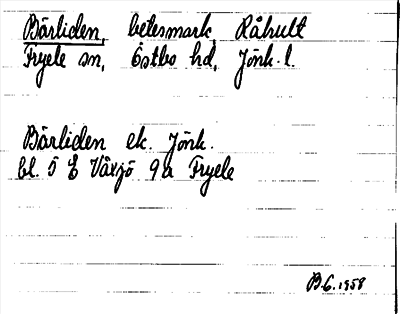 Bärliden, betesmark, Råhult
Fryele sn, Östbo hd, Jönk. l.
Bärliden ek. Jönk.
bl. 5 E Växjö 9a Fryele
B.G. 1958